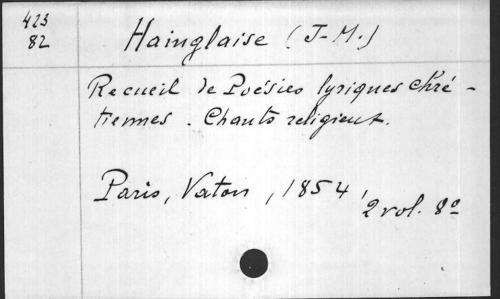 423
82
Hainglaise (J-M.)
Recueil de Poésies lyriques chré-
tiennes. Chants religieux.
Paris, Vaton, 1854,
2 vol. 8º